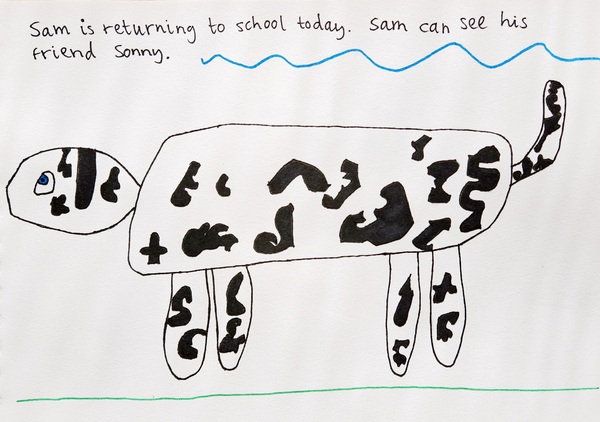 Sam is returning to school today. Sam can see his
friend Sonny.